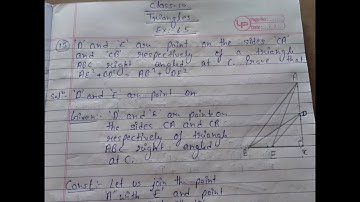 Class-10
Triangles
Ex- 6.5
(13) 'D' and 'E' are point on the sides 'CA'
and 'CB' respectively of a triangle
ABC right angled at C. Prove that
AE²+BD² = AB²+DE²
Solⁿ 'D' and 'E' are point on
Given:- 'D' and 'E' are point on
the sides CA and CB
respectively of triangle
ABC right angled
at C.
A
D
B E C
Const:- Let us join the point
'A' with 'E' and point